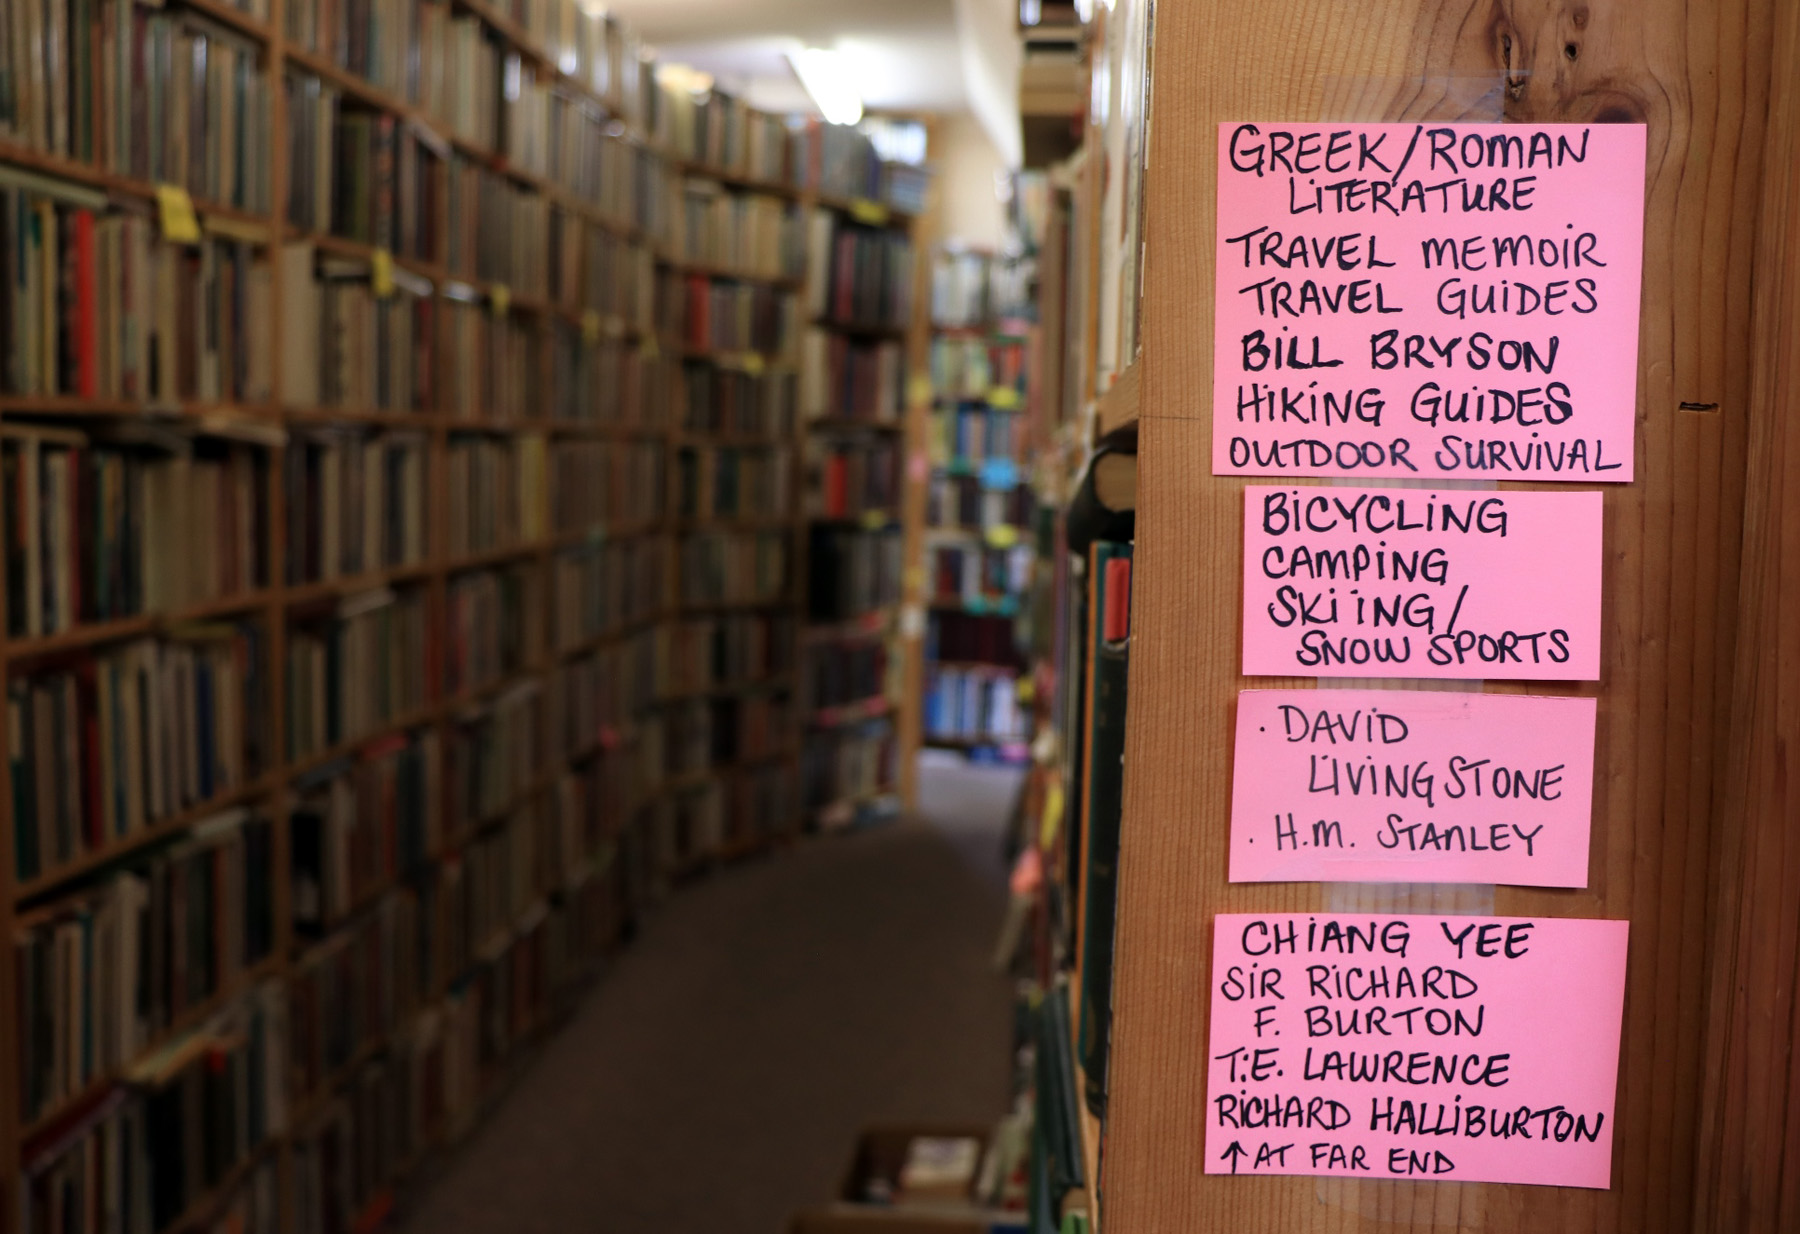 GREEK/ROMAN
LITERATURE
TRAVEL MEMOIR
TRAVEL GUIDES
BILL BRYSON
HIKING GUIDES
OUTDOOR SURVIVAL
BICYCLING
CAMPING
SKIING/
SNOW SPORTS
· DAVID
LIVINGSTONE
· H.M. STANLEY
CHIANG YEE
SIR RICHARD
F. BURTON
T.E. LAWRENCE
RICHARD HALLIBURTON
↑ AT FAR END